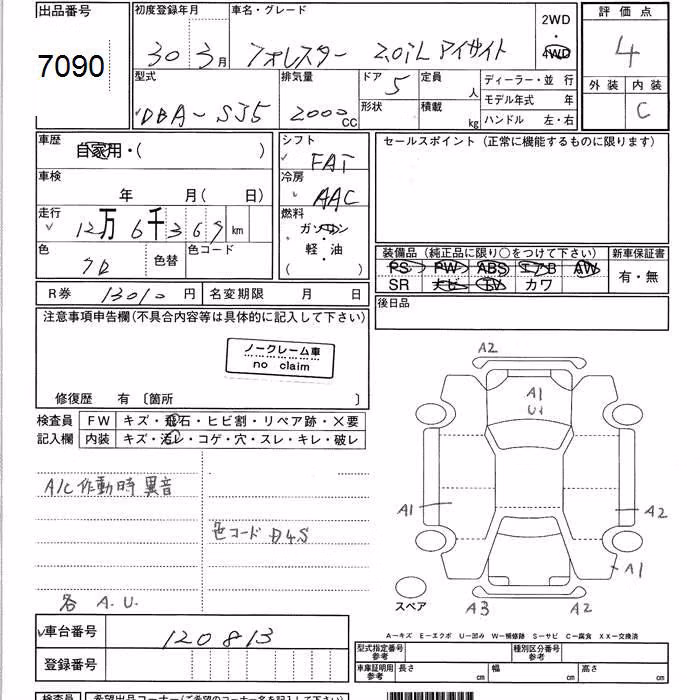 出品番号
7090
初度登録年月
30 3月
車名・グレード
フォレスター 2.0iL アイサイト
2WD
・
4WD
評価点
4
外装 内装
C
型式
DBA-SJ5
排気量
2000 CC
ドア 5
形状
定員 人
積載 kg
ディーラー・並行
モデル年式 年
ハンドル 左・右
車歴
自家用・( )
車検
年 月( 日)
走行
12万6千369 km
色
クロ
色替
色コード
シフト
FAT
冷房
AAC
燃料
ガソリン
・
軽・油
( )
セールスポイント(正常に機能するものに限ります)
装備品(純正品に限り○をつけて下さい)
PS PW ABS エアB AW
SR ナビ TV カワ
新車保証書
有・無
後日品
R券 13010円
名変期限 月 日
注意事項申告欄(不具合内容等は具体的に記入して下さい)
ノークレーム車
no claim
修復歴 有 〔箇所 〕
検査員
記入欄
FW キズ・飛石・ヒビ割・リペア跡・×要
内装 キズ・汚レ・コゲ・穴・スレ・キレ・破レ
A/C 作動時 異音
色コード D4S
各 A.U.
A2
A1
U1
A1
A2
A1
A3
A2
スペア
A-キズ E-エクボ U-凹み W-補修跡 S-サビ C-腐食 XX-交換済
車台番号
120813
登録番号
型式指定番号
参考
種別区分番号
参考
車庫証明用
参考
長さ cm
幅 cm
高さ cm
検査員
希望出品コーナー(コーナー名を記入して下さい)